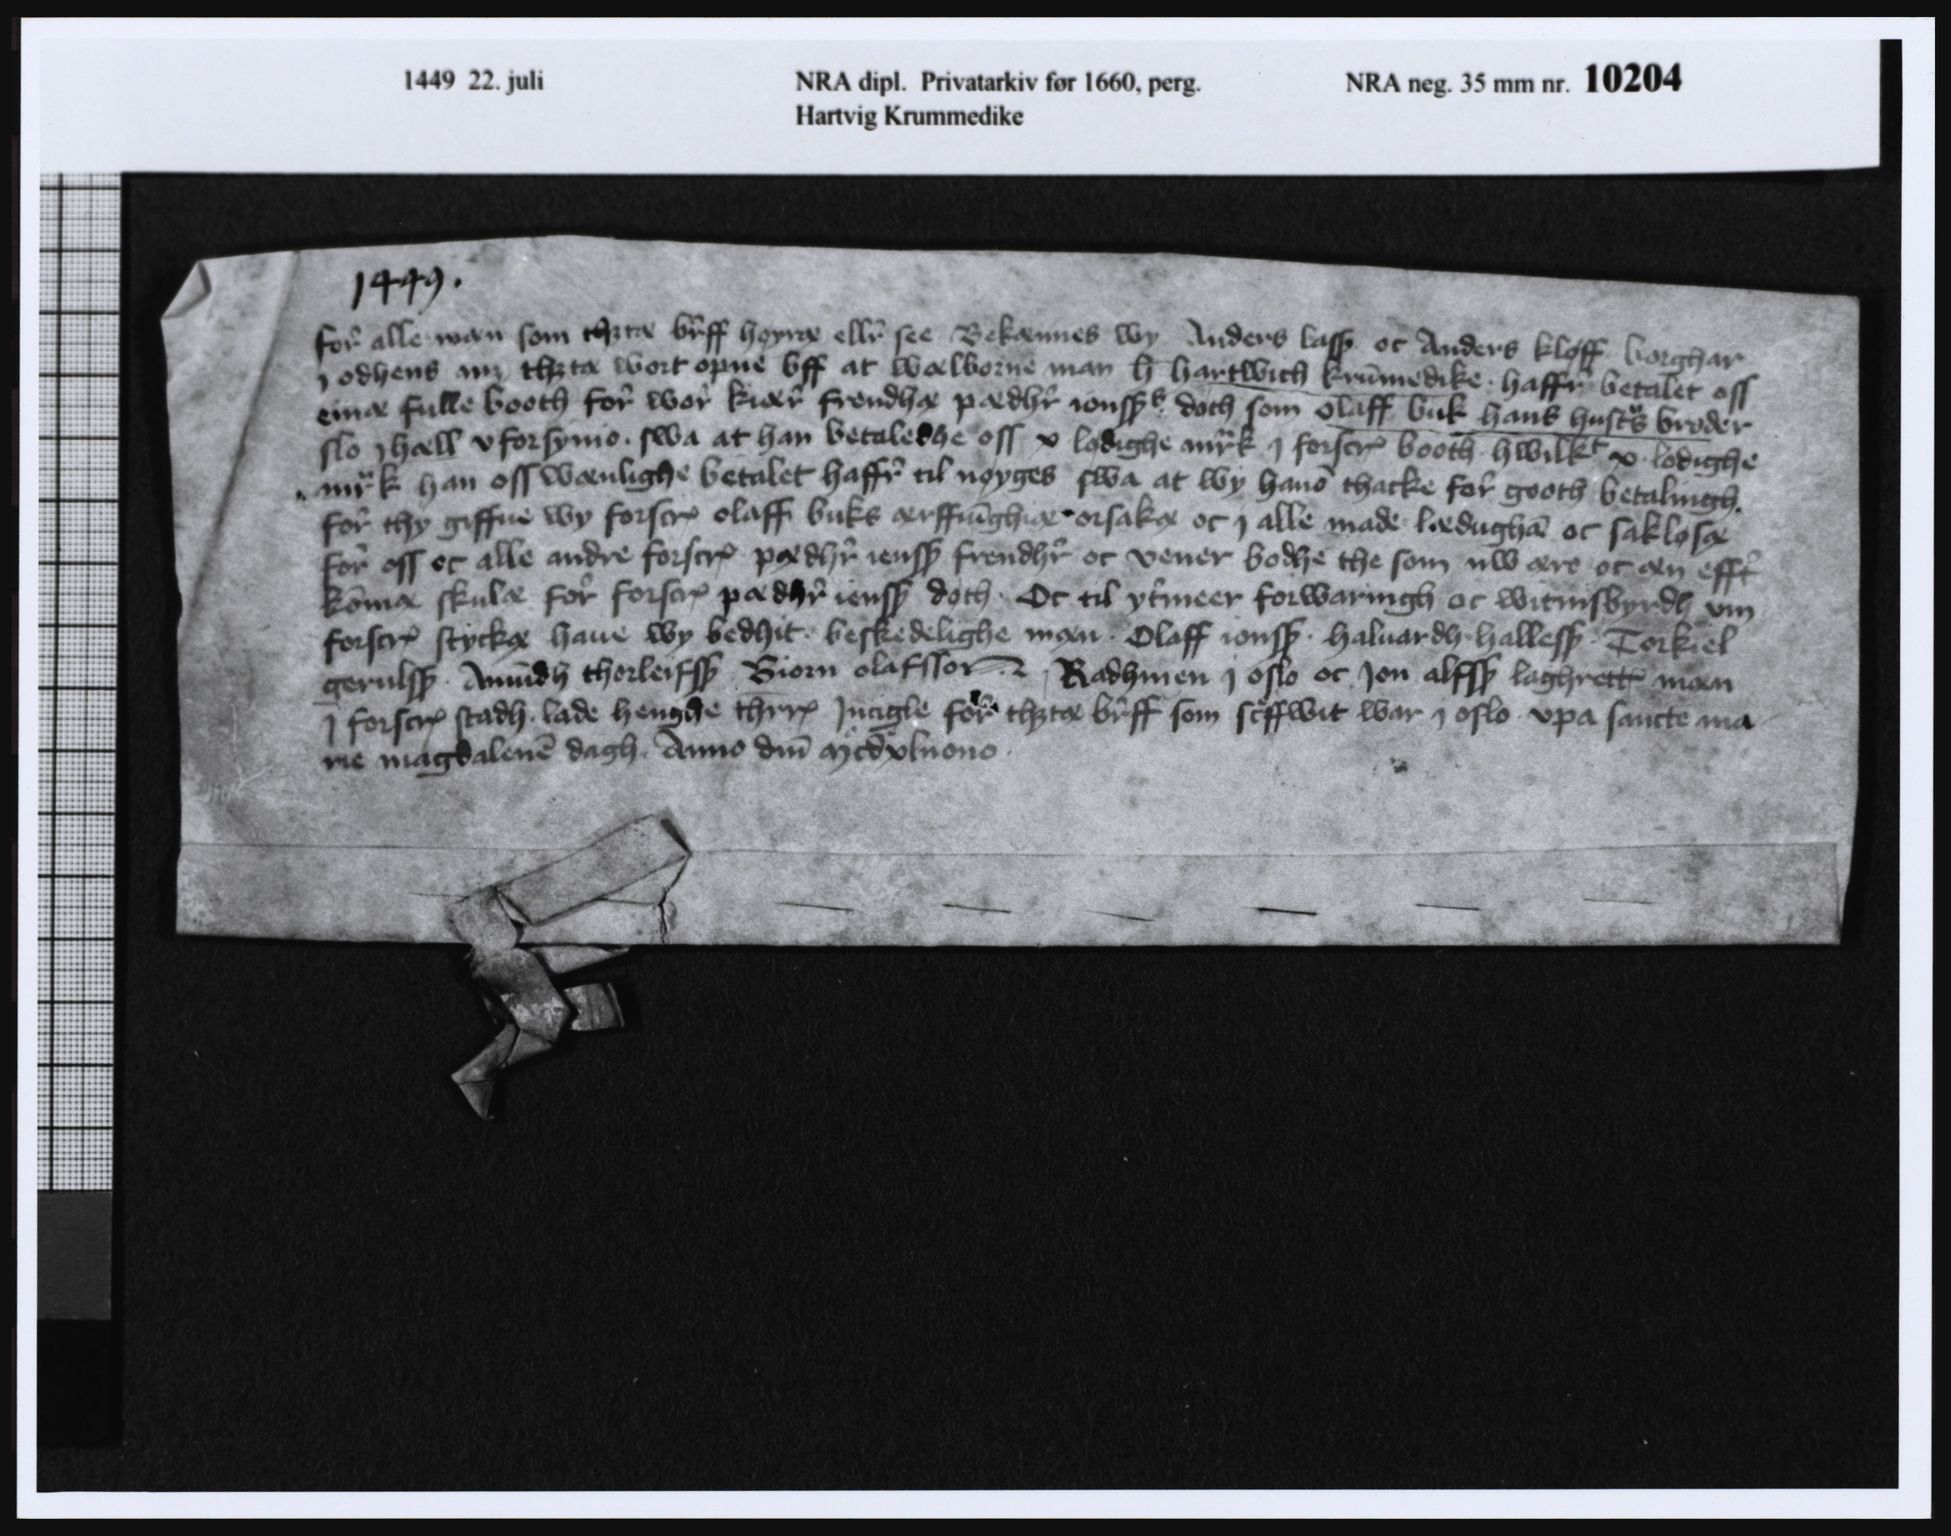 1449 22. juli
NRA dipl. Privatarkiv før 1660, perg.
Hartvig Krummedike
NRA neg. 35 mm nr. 10204
1449.
for alle man som thætæ breff høyræ eller see Bekænnes wy Anders lass oc Anders kloff borghar
j odhens mz thætæ wort opne bff at wælborne man h hartwich krummedike haffr betalet oss
einæ fulle booth for wor kiær frendhæ pædhr ionss doth som olaff buk hans hustrus broder
slo j hæll vforsynio swa at han betaledhe oss x lødighe mrk j forscr booth hwilkt x lødighe
mrk han oss wænlighe betalet haffr til nøyges swa at wy hanom thacke for gooth betalingh
for thy giffue wy forscr olaff buks ærffuinghiæ orsakæ oc j alle made lædughæ oc sakløsæ
for oss oc alle andre forscr pædhr ienss frendhr oc vener bodhe the som nw ære oc æn efftr
komæ skulæ for forscr pædhr ienss doth Oc til ytmeer forwaringh oc witnisbyrdh vm
forscr styckæ haue wy bedhit beskedelighe mæn Olaff ionss haluardh halless Torkiel
gerulss Amundh thorleifss Biorn olafsson Radhmen j oslo oc Jon alfss laghrett mæn
j forscr stadh lade henghe therr Jncigle for thætæ breff som screffwit war j oslo vpa sancte ma
rie magdalene dagh Anno dni mcdxlnono